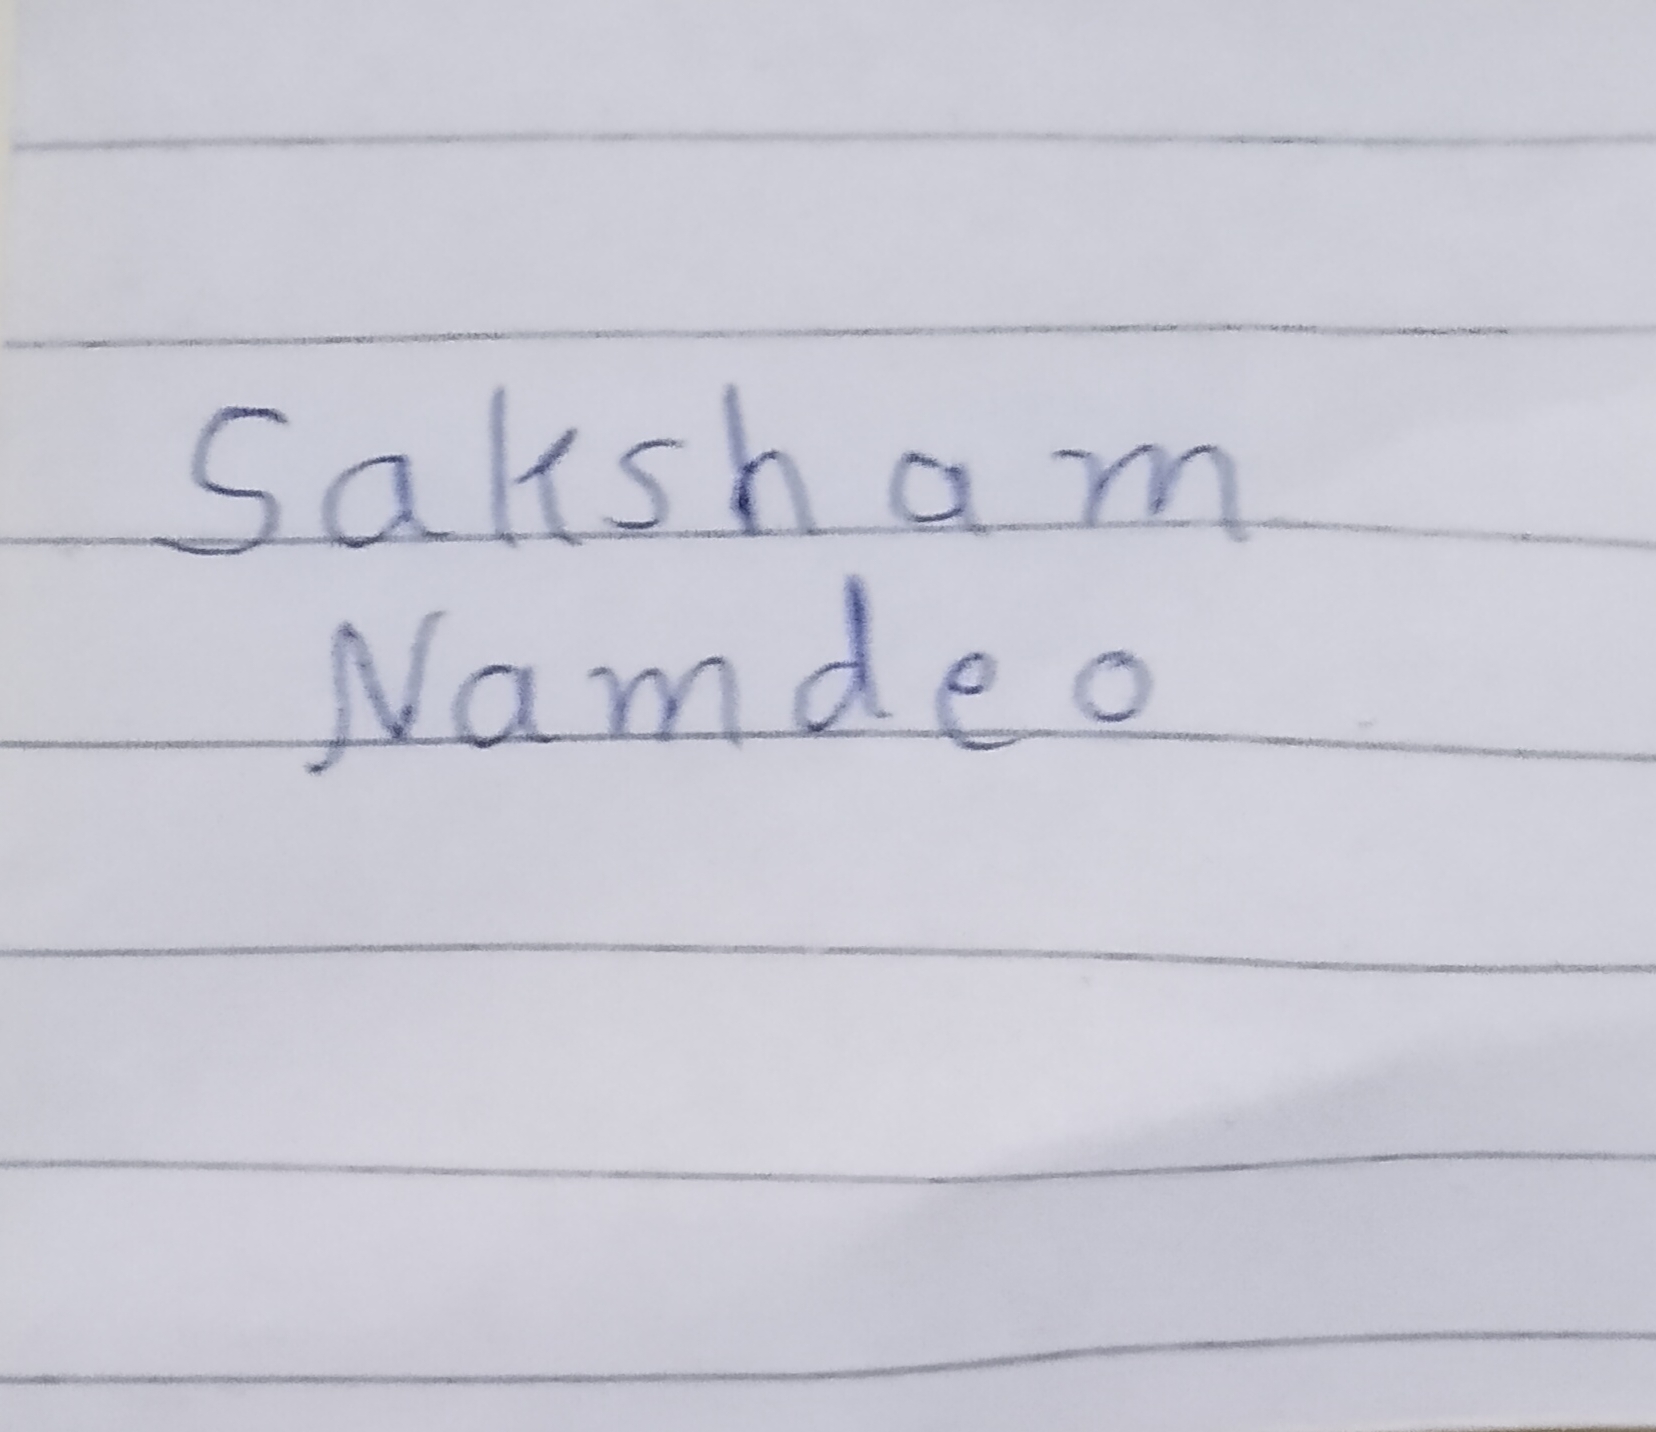 Saksham
Namdeo